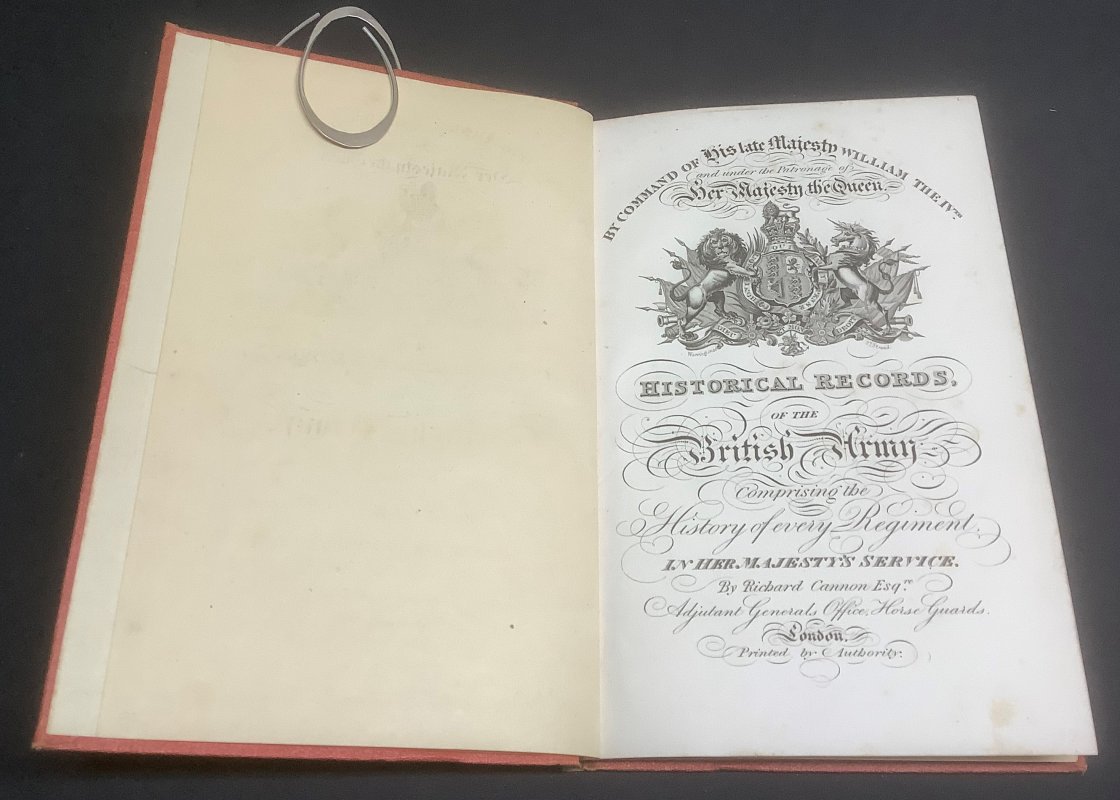 BY COMMAND OF His late Majesty WILLIAM THE IVTH
and under the Patronage of
Her Majesty the Queen.
HISTORICAL RECORDS.
OF THE
British Army
Comprising the
History of every Regiment
IN HER MAJESTY'S SERVICE.
By Richard Cannon Esqre
Adjutant Generals Office, Horse Guards.
London,
Printed by Authority.